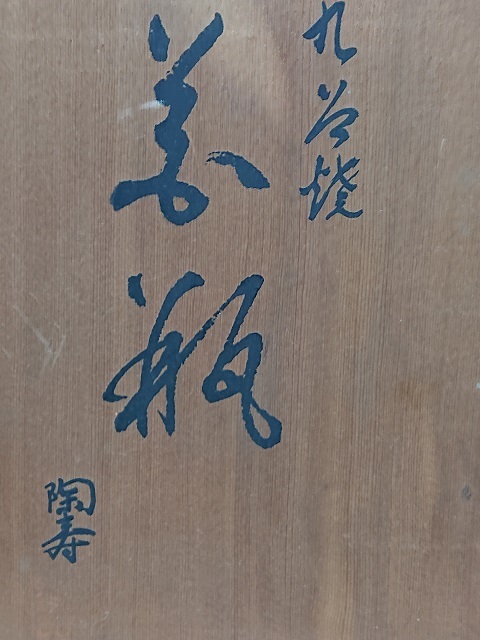 九谷焼
花瓶
陶寿